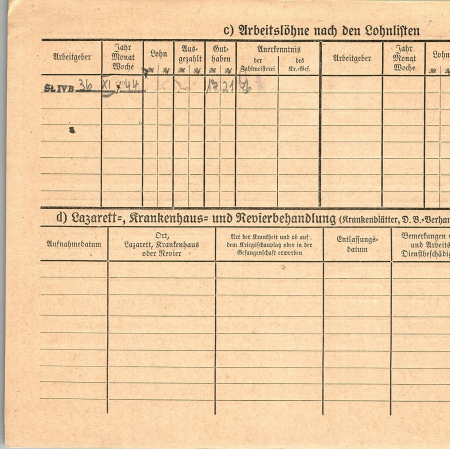 c) Arbeitslöhne nach den Lohnlisten
Arbeitgeber Jahr Monat Woche Lohn Aus- gezahlt Gut- haben Anerkenntnis Arbeitgeber Jahr Monat Woche Lohn
der Zahlmeisterei des Kr.-Gef.
St IV B 36 XI. 44 17 21
d) Lazarett-, Krankenhaus- und Revierbehandlung (Krankenblätter, D. B.-Verhan
Aufnahmedatum Ort, Lazarett, Krankenhaus oder Revier Art der Krankheit und ob auf dem Kriegsschauplatz oder in der Gefangenschaft erworben Entlassungs- datum Bemerkungen und Arbeits Dienstbeschädig